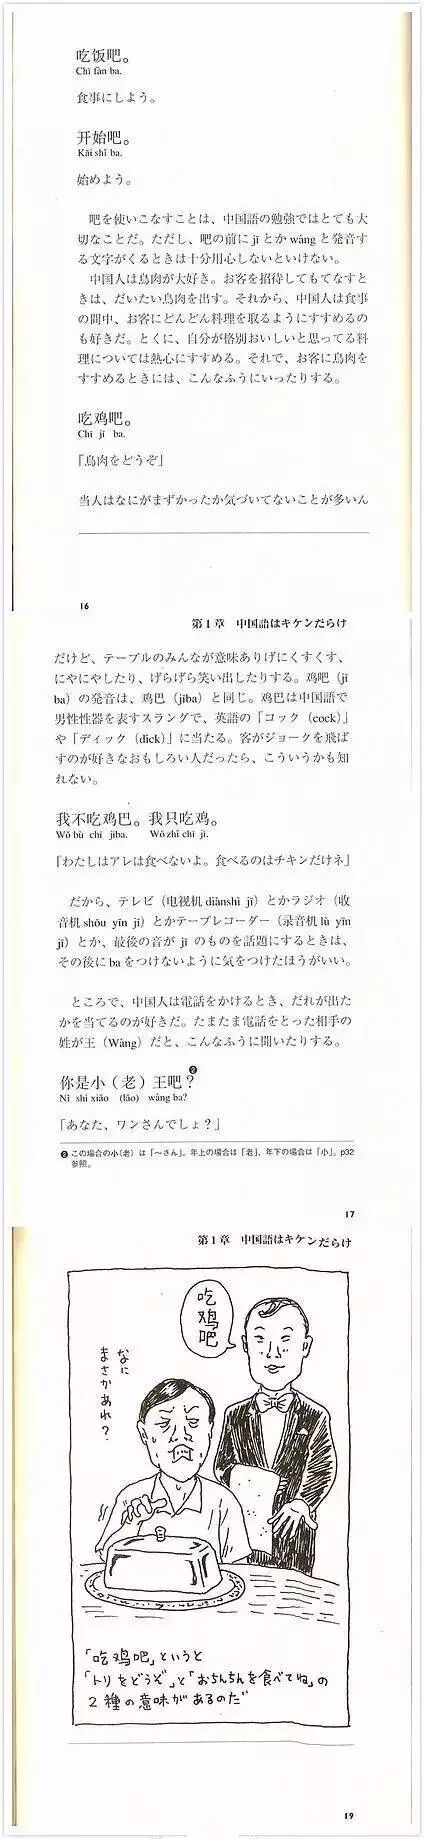 吃饭吧。
Chī fàn ba.
食事にしよう。
开始吧。
Kāi shǐ ba.
始めよう。
吧を使いこなすことは、中国語の勉強ではとても大
切なことだ。ただし、吧の前に jī とか wáng と発音す
る文字がくるときは十分用心しないといけない。
中国人は鳥肉が大好き。お客を招待してもてなすと
きは、だいたい鳥肉を出す。それから、中国人は食事
の間中、お客にどんどん料理を取るようにすすめるの
も好きだ。とくに、自分が格別おいしいと思ってる料
理については熱心にすすめる。それで、お客に鳥肉を
すすめるときには、こんなふうにいったりする。
吃鸡吧。
Chī jī ba.
「鳥肉をどうぞ」
当人はなにがまずかったか気づいてないことが多いん
16
第1章 中国語はキケンだらけ
だけど、テーブルのみんなが意味ありげにくすくす、
にやにやしたり、げらげら笑い出したりする。鸡吧（jī
ba）の発音は、鸡巴（jība）と同じ。鸡巴は中国語で
男性性器を表すスラングで、英語の「コック（cock）」
や「ディック（dick）」に当たる。客がジョークを飛ば
すのが好きなおもしろい人だったら、こういうかも知
れない。
我不吃鸡巴。我只吃鸡。
Wǒ bù chī jība. Wǒ zhǐ chī jī.
「わたしはアレは食べないよ。食べるのはチキンだけネ」
だから、テレビ（电视机 diànshì jī）とかラジオ（收
音机 shōu yīn jī）とかテープレコーダー（录音机 lù yīn
jī）とか、最後の音が jī のものを話題にするときは、
その後に ba をつけないように気をつけたほうがいい。
ところで、中国人は電話をかけるとき、だれが出た
かを当てるのが好きだ。たまたま電話をとった相手の
姓が王（Wáng）だと、こんなふうに聞いたりする。
你是小（老）王吧？❷
Nǐ shì xiǎo (lǎo) wáng ba?
「あなた、ワンさんでしょ？」
❷ この場合の小（老）は「〜さん」。年上の場合は「老」、年下の場合は「小」。p32
参照。
17
第1章 中国語はキケンだらけ
吃鸡吧
なに
まさかあれ？
「吃鸡吧」というと
「トリをどうぞ」と「おちんちんを食べてね」の
2種の意味があるのだ
19